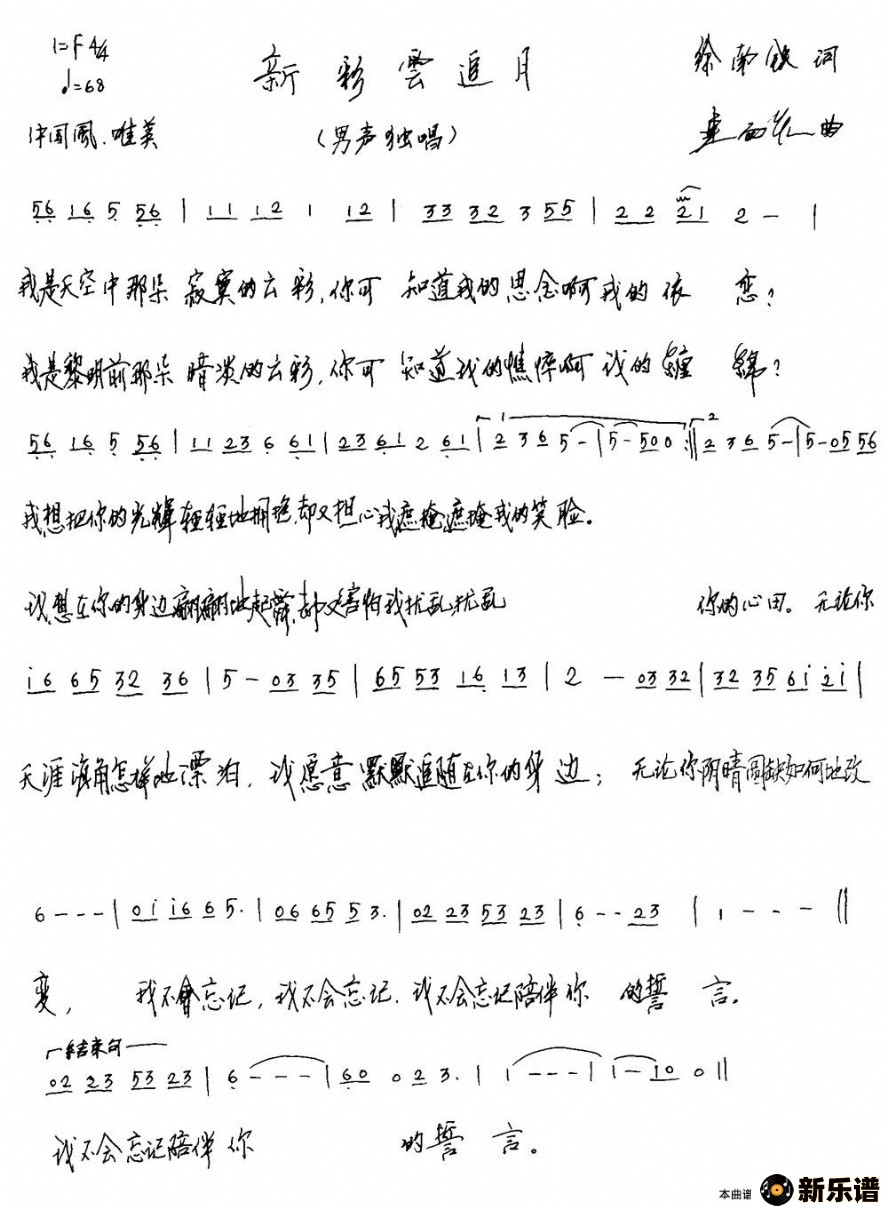 1=F 4/4
♩=68
新彩雲追月
徐 词
中国風、唯美
（男声独唱）
曲
56 16 5 56 | 11 12 1 12 | 33 32 3 55 | 22 21 2 - |
我是天空中那朵 寂寞的云彩，你可 知道我的思念啊我的依 恋？
我是黎明前那朵 暗淡的云彩，你可 知道我的憔悴啊 我的纏 綿？
56 16 5 56 | 11 23 6 61 | 23 61 2 61 | 1 2 36 5 - | 5 - 500 :|| 2 2 36 5 - | 5 - 05 56
我想把你的光輝轻轻地拥抱，却又担心我遮掩遮掩我的笑脸。
我想在你的身边翩翩地起舞，却又害怕我扰乱扰乱 你的心田。无论你
i6 65 32 36 | 5 - 03 35 | 65 53 16 13 | 2 - 03 32 | 32 35 6i 2i |
天涯海角怎样地漂泊，我愿意默默追随在你的身边；无论你阴晴圆缺如何地改
6 - - - | 0i i6 6 5. | 06 65 5 3. | 02 23 53 23 | 6 - - 23 | 1 - - - ||
变， 我不會忘记，我不会忘记．我不会忘记陪伴你 的誓 言。
结束句
02 23 53 23 | 6 - - - | 60 0 23. | 1 - - - | 1 - 10 0 ||
我不会忘记陪伴你 的誓 言。
本曲谱
新乐谱